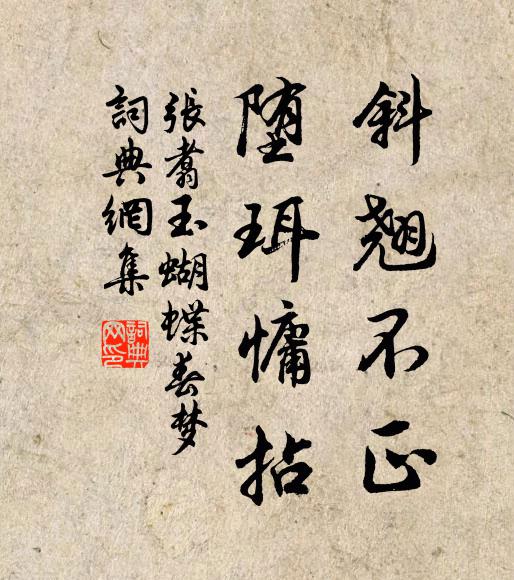 斜翘不正
堕珥慵拈
張翥玉蝴蝶春梦
詞典網集
詞典
网印